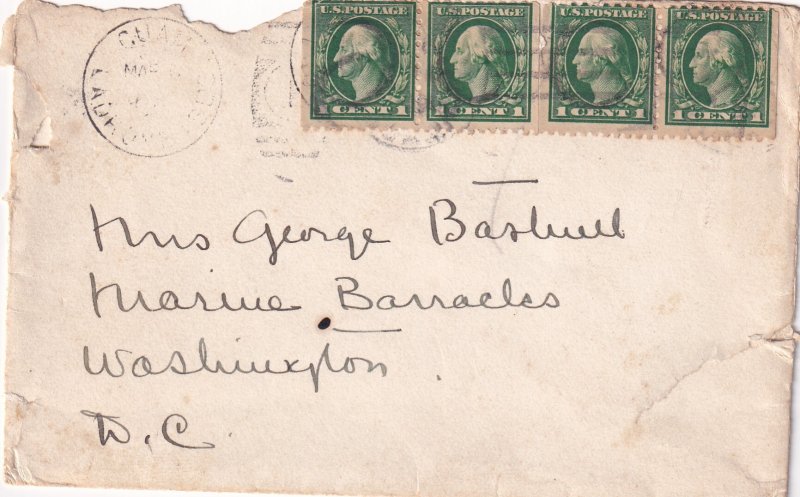 U.S. POSTAGE U.S. POSTAGE U.S. POSTAGE U.S. POSTAGE
1 CENT 1 1 CENT 1 1 CENT 1 1 CENT 1
MAR
Mrs George
Marine Barracks
Washington
D.C.